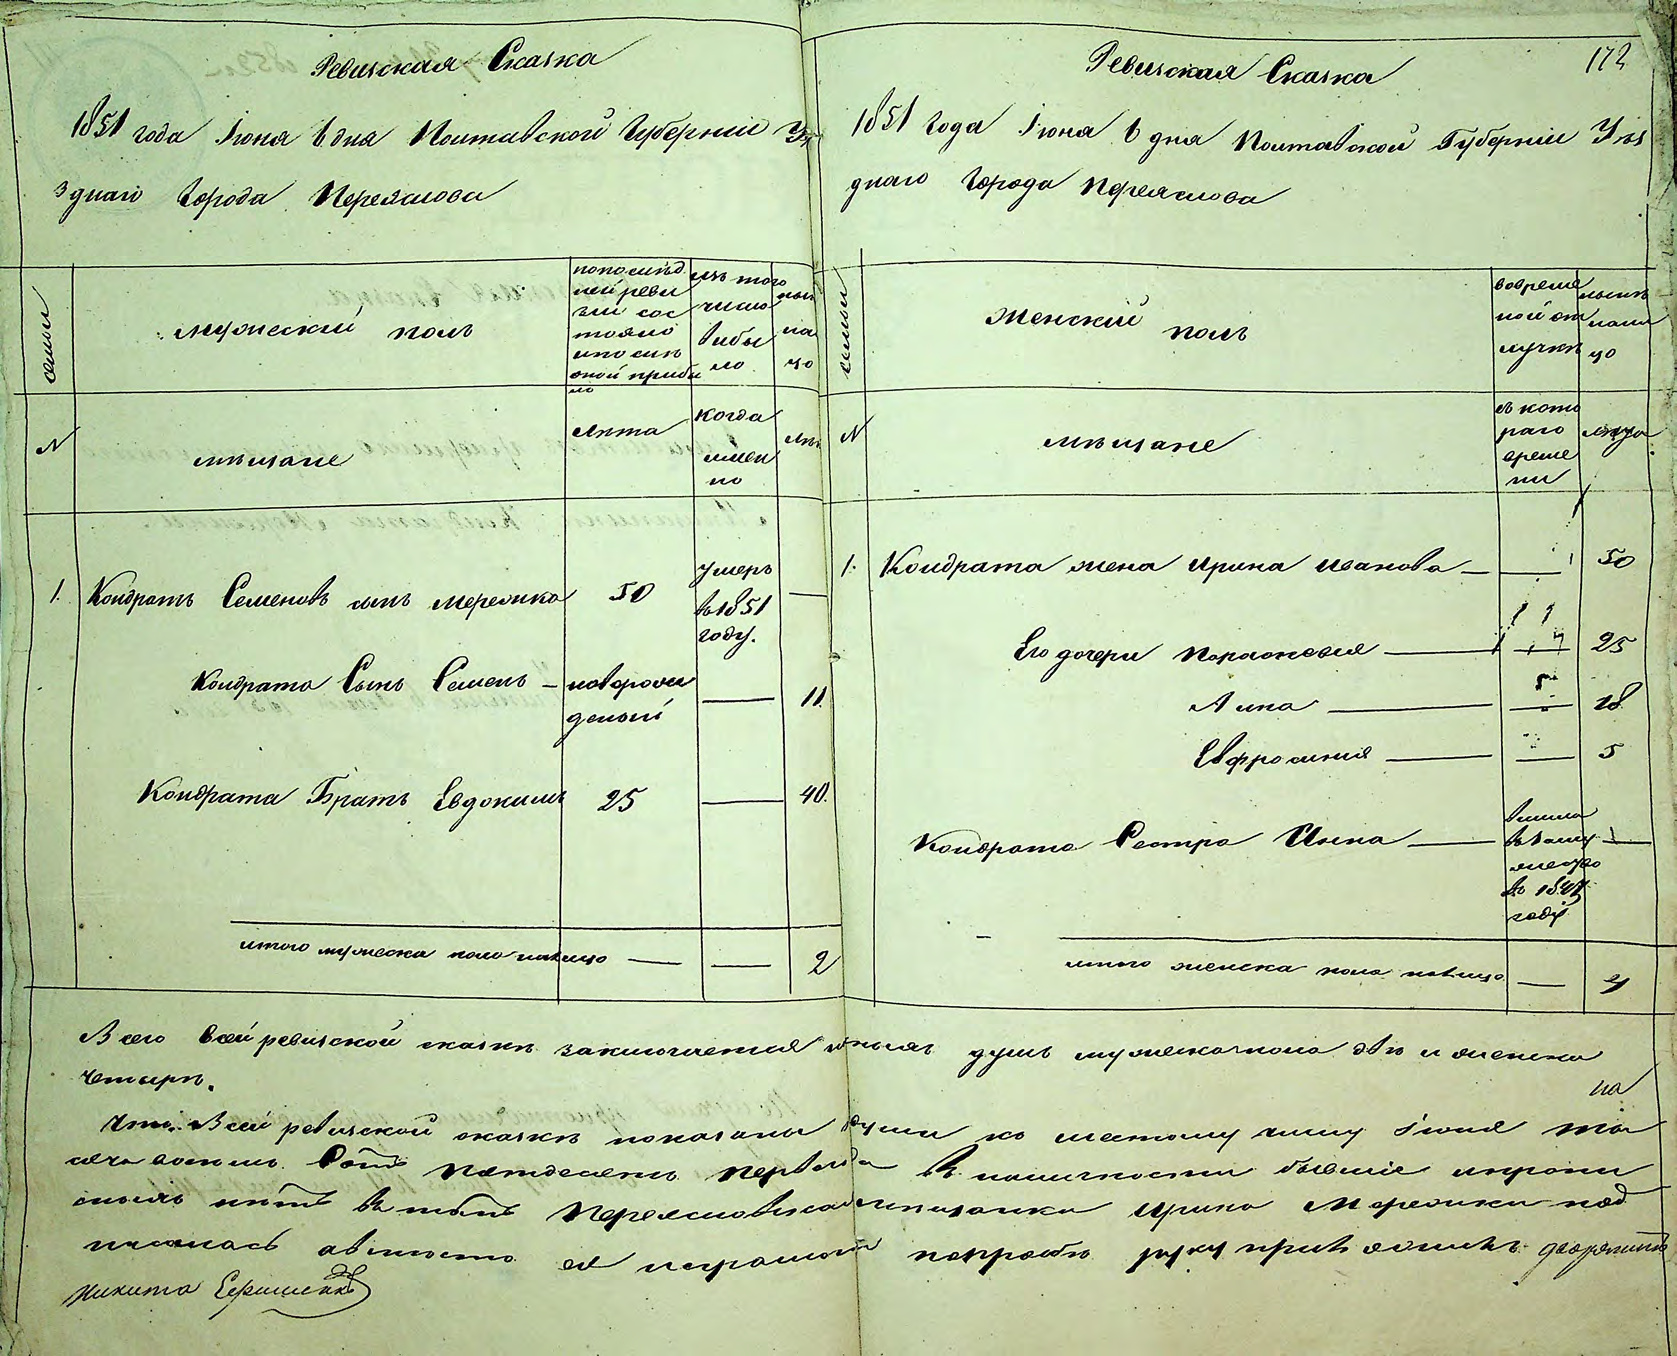 Ревизская Сказка
1851 года Іюня 6 дня Полтавской Губерніи Уѣ
зднаго Города Переяслова
семьи
мужескій полъ
по послѣд
ней реви
зіи сос
тояло
или послѣ
оной прибы
ло
изъ того
числа
выбы
ло
нын
на
цо
N
мѣщане
лѣта
когда
имен
но
лѣт
1. Кондратъ Семеновъ сынъ Мережка 50
умеръ
въ 1851
году.
Кондрата Сынъ Семенъ — новорож
денный
11.
Кондрата Братъ Евдокимъ 25 — 40.
итого мужеска пола налицо — — 2
172
Ревизская Сказка
1851 года Іюня 6 дня Полтавской Губерніи Уѣз
днаго Города Переяслова
семьи
Женскій полъ
во времен
ной от
лучкѣ
нынѣ
нали
цо
N
мѣщане
съ кото
раго
време
ни
лѣта
1. Кондрата жена Ирина Иванова — — 50
Его дочери Порасковія — — 25
Анна — — 18
Евфросинія — — 5
Кондрата Сестра Анна —
вышла
въ заму
жество
въ 1847
году
итого женска пола налицо — 4
Всего в сей ревизской сказкѣ заключается душъ мужеска пола двѣ и женска
четыре.
Что в сей ревизской сказкѣ показаны души по шестому числу Іюня ты
на
сяча восемь Сотъ пятдесятъ перваго въ наличности бывшіе и пропи
нѣтъ въ томъ Переясловская мѣщанка Ирина Мережки под
писалась а вмѣсто ея неграмотн по просьбѣ руку приложилъ дворянинъ
Никита Ефименко